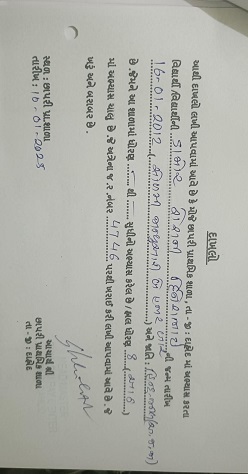 દાખલો
આથી દાખલો લખી આપવામાં આવે છે કે મોજે છાપરી પ્રાથમિક શાળા, તા - જી : દાહોદ માં અભ્યાસ કરતા
વિદ્યાર્થી /વિદ્યાર્થીની ડામોર
ની જન્મ તારીખ
16-01-2012
) અને જાતિ :
છે. જેમને આ શાળામાં ધોરણ ....... થી ....... સુધીનો અભ્યાસ કરેલ છે /હાલ ધોરણ 8 (આઠ)
માં અભ્યાસ ચાલુ છે. જે અત્રેના જ.ર. નંબર 4746 પરથી ખરાઈ કરી લખી આપવામાં આવે છે. જે
ખરું અને બરાબર છે.
સ્થળ : છાપરી પ્રા.શાળા
તારીખ : 10-01-2025
આચાર્ય શ્રી
છાપરી પ્રાથમિક શાળા
તા - જી : દાહોદ